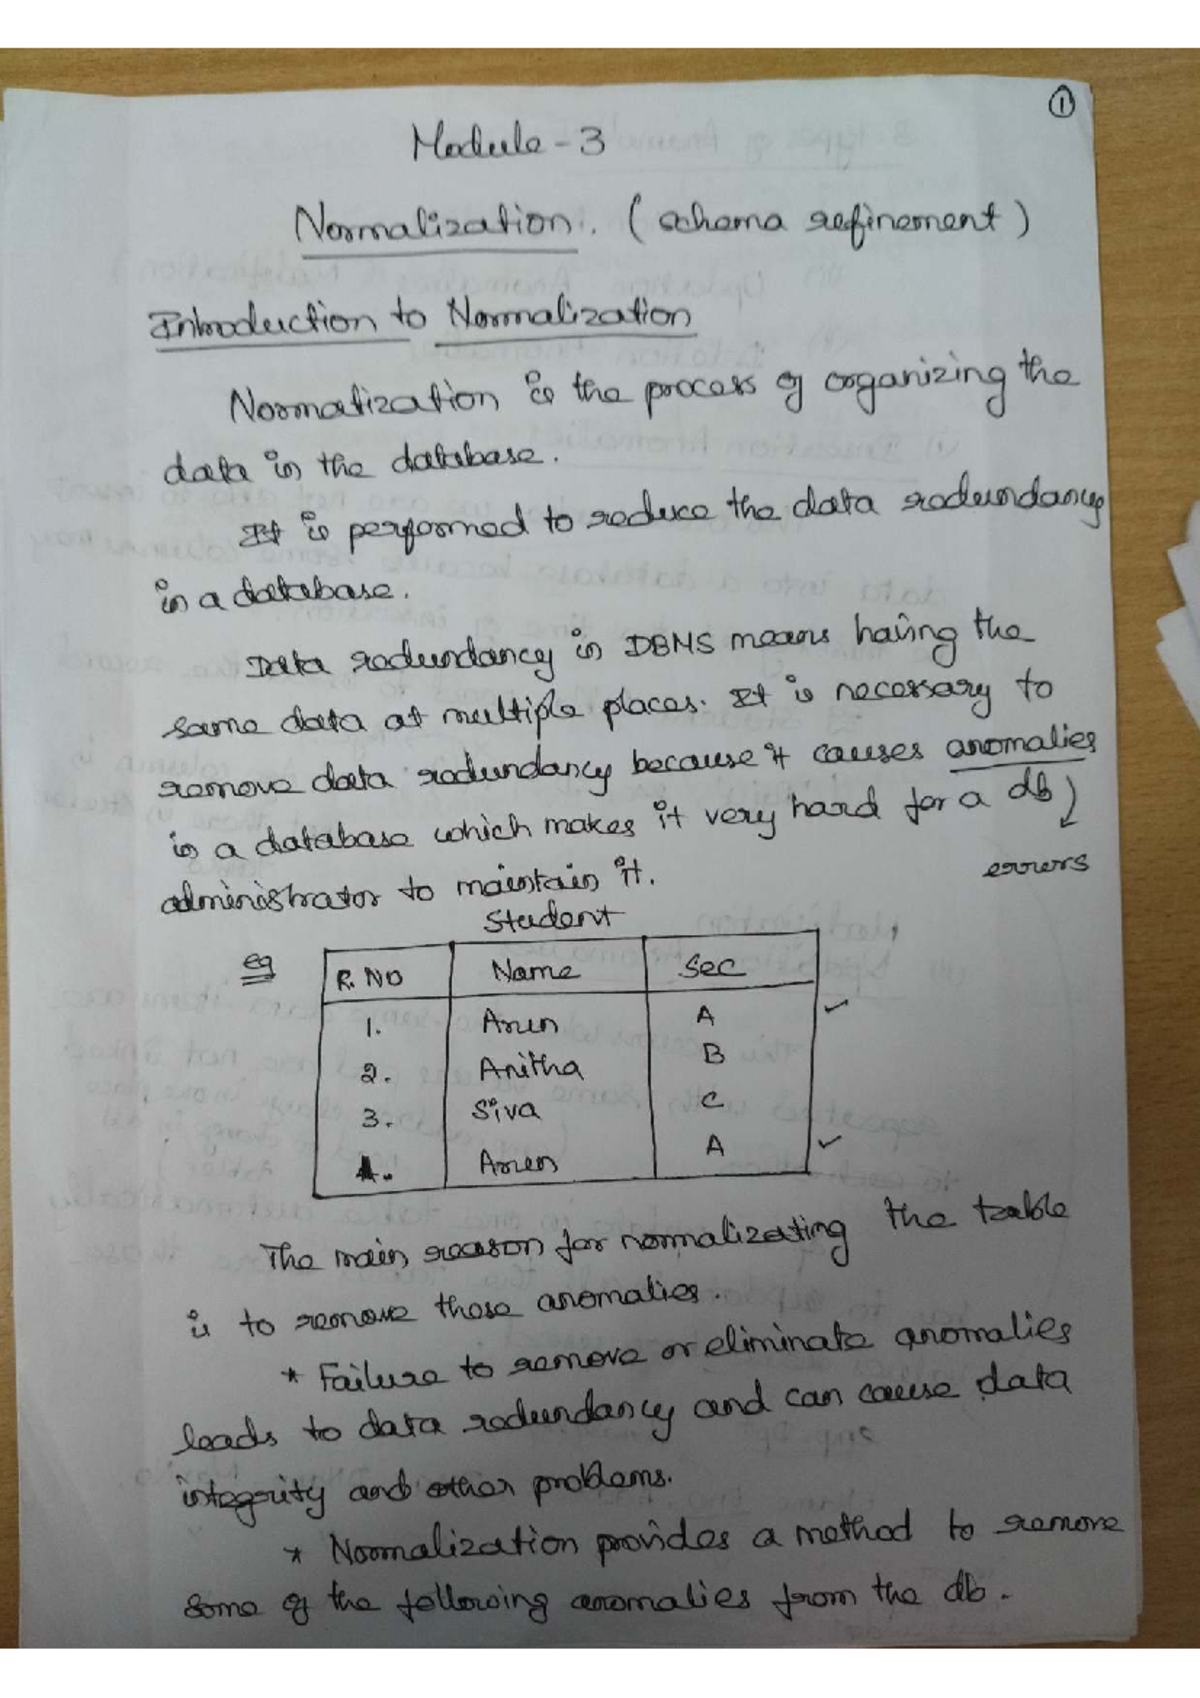 ①
Module - 3
Normalization. (schema refinement)
Introduction to Normalization
Normalization is the process of organizing the
data in the database.
It is performed to reduce the data redundancy
in a database.
Data redundancy in DBMS means having the
same data at multiple places. It is necessary to
remove data redundancy because it causes anomalies
in a database which makes it very hard for a db
errors
administrator to maintain it.
Student
eg
R.NO Name Sec
1. Arun A ✓
2. Anitha B
3. Siva C
1. Arun A ✓
The main reason for normalizating the table
is to remove these anomalies.
* Failure to remove or eliminate anomalies
leads to data redundancy and can cause data
integrity and other problems.
* Normalization provides a method to remove
some of the following anomalies from the db.